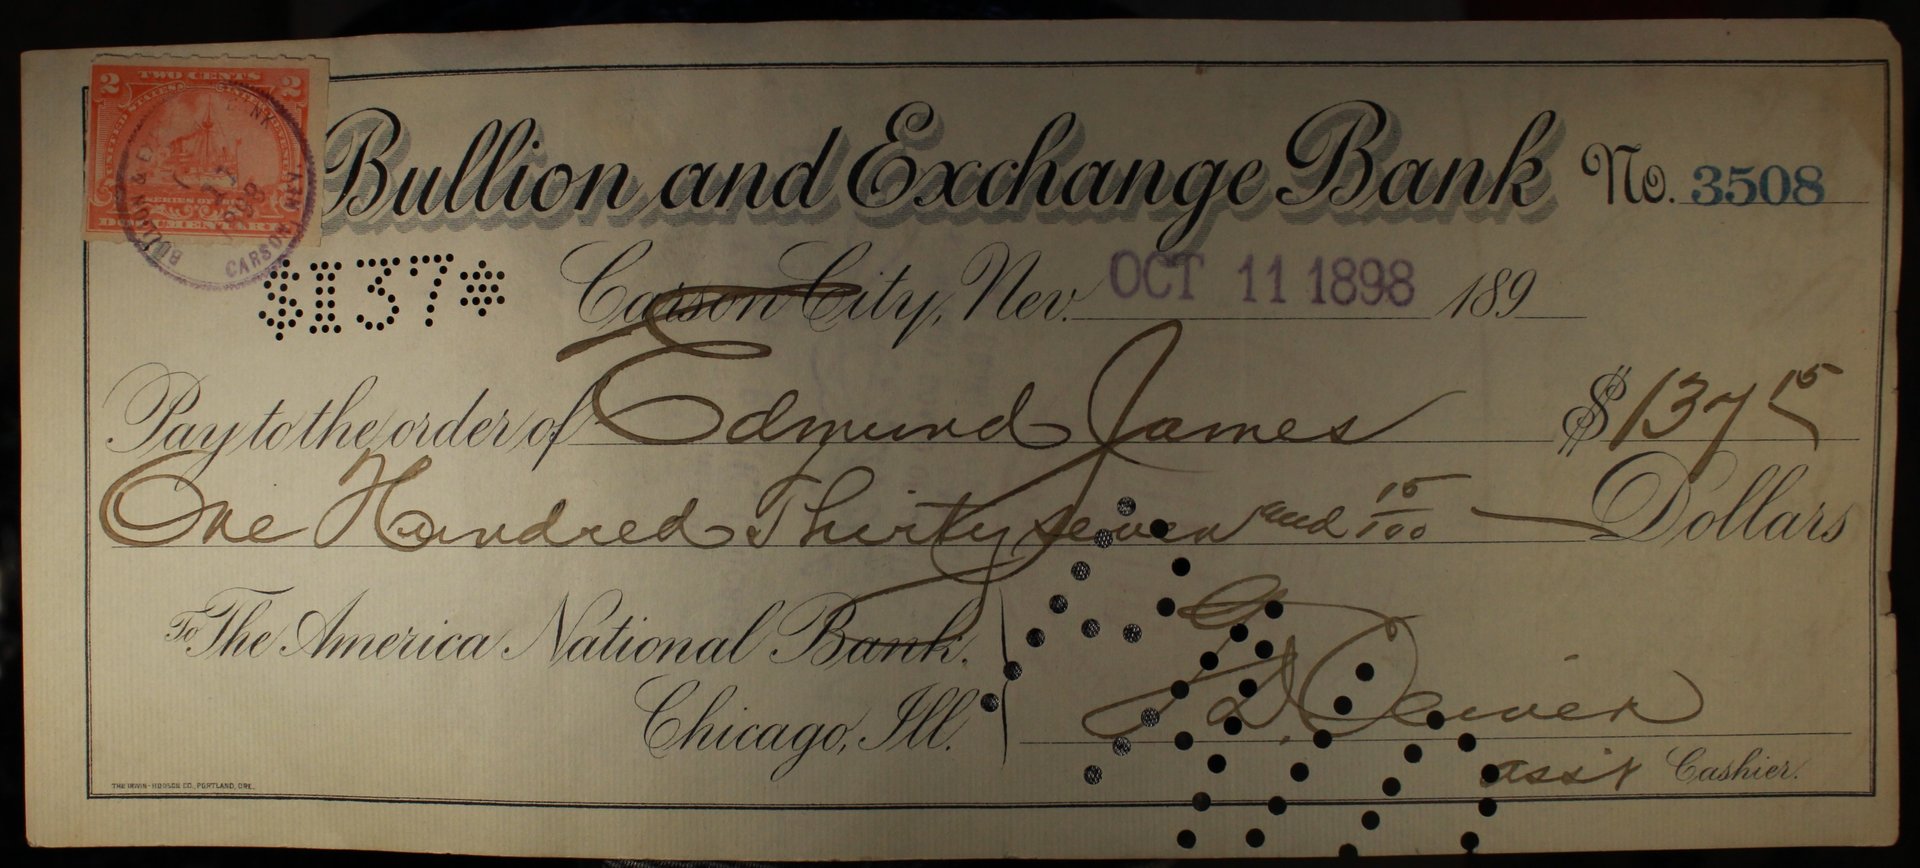 2 TWO CENTS 2
UNITED STATES INTERNAL REVENUE
SERIES OF
DOCUMENTARY
BULLION & BANK
CARSON NEV.
Bullion and Exchange Bank No. 3508
$137
Carson City, Nev. OCT 11 1898 189
Pay to the order of Edmund James $137 15
One Hundred Thirty seven and 15/100 Dollars
To The America National Bank.
Chicago, Ill.
Ass't Cashier.
THE IRWIN-HODSON CO., PORTLAND, ORE.